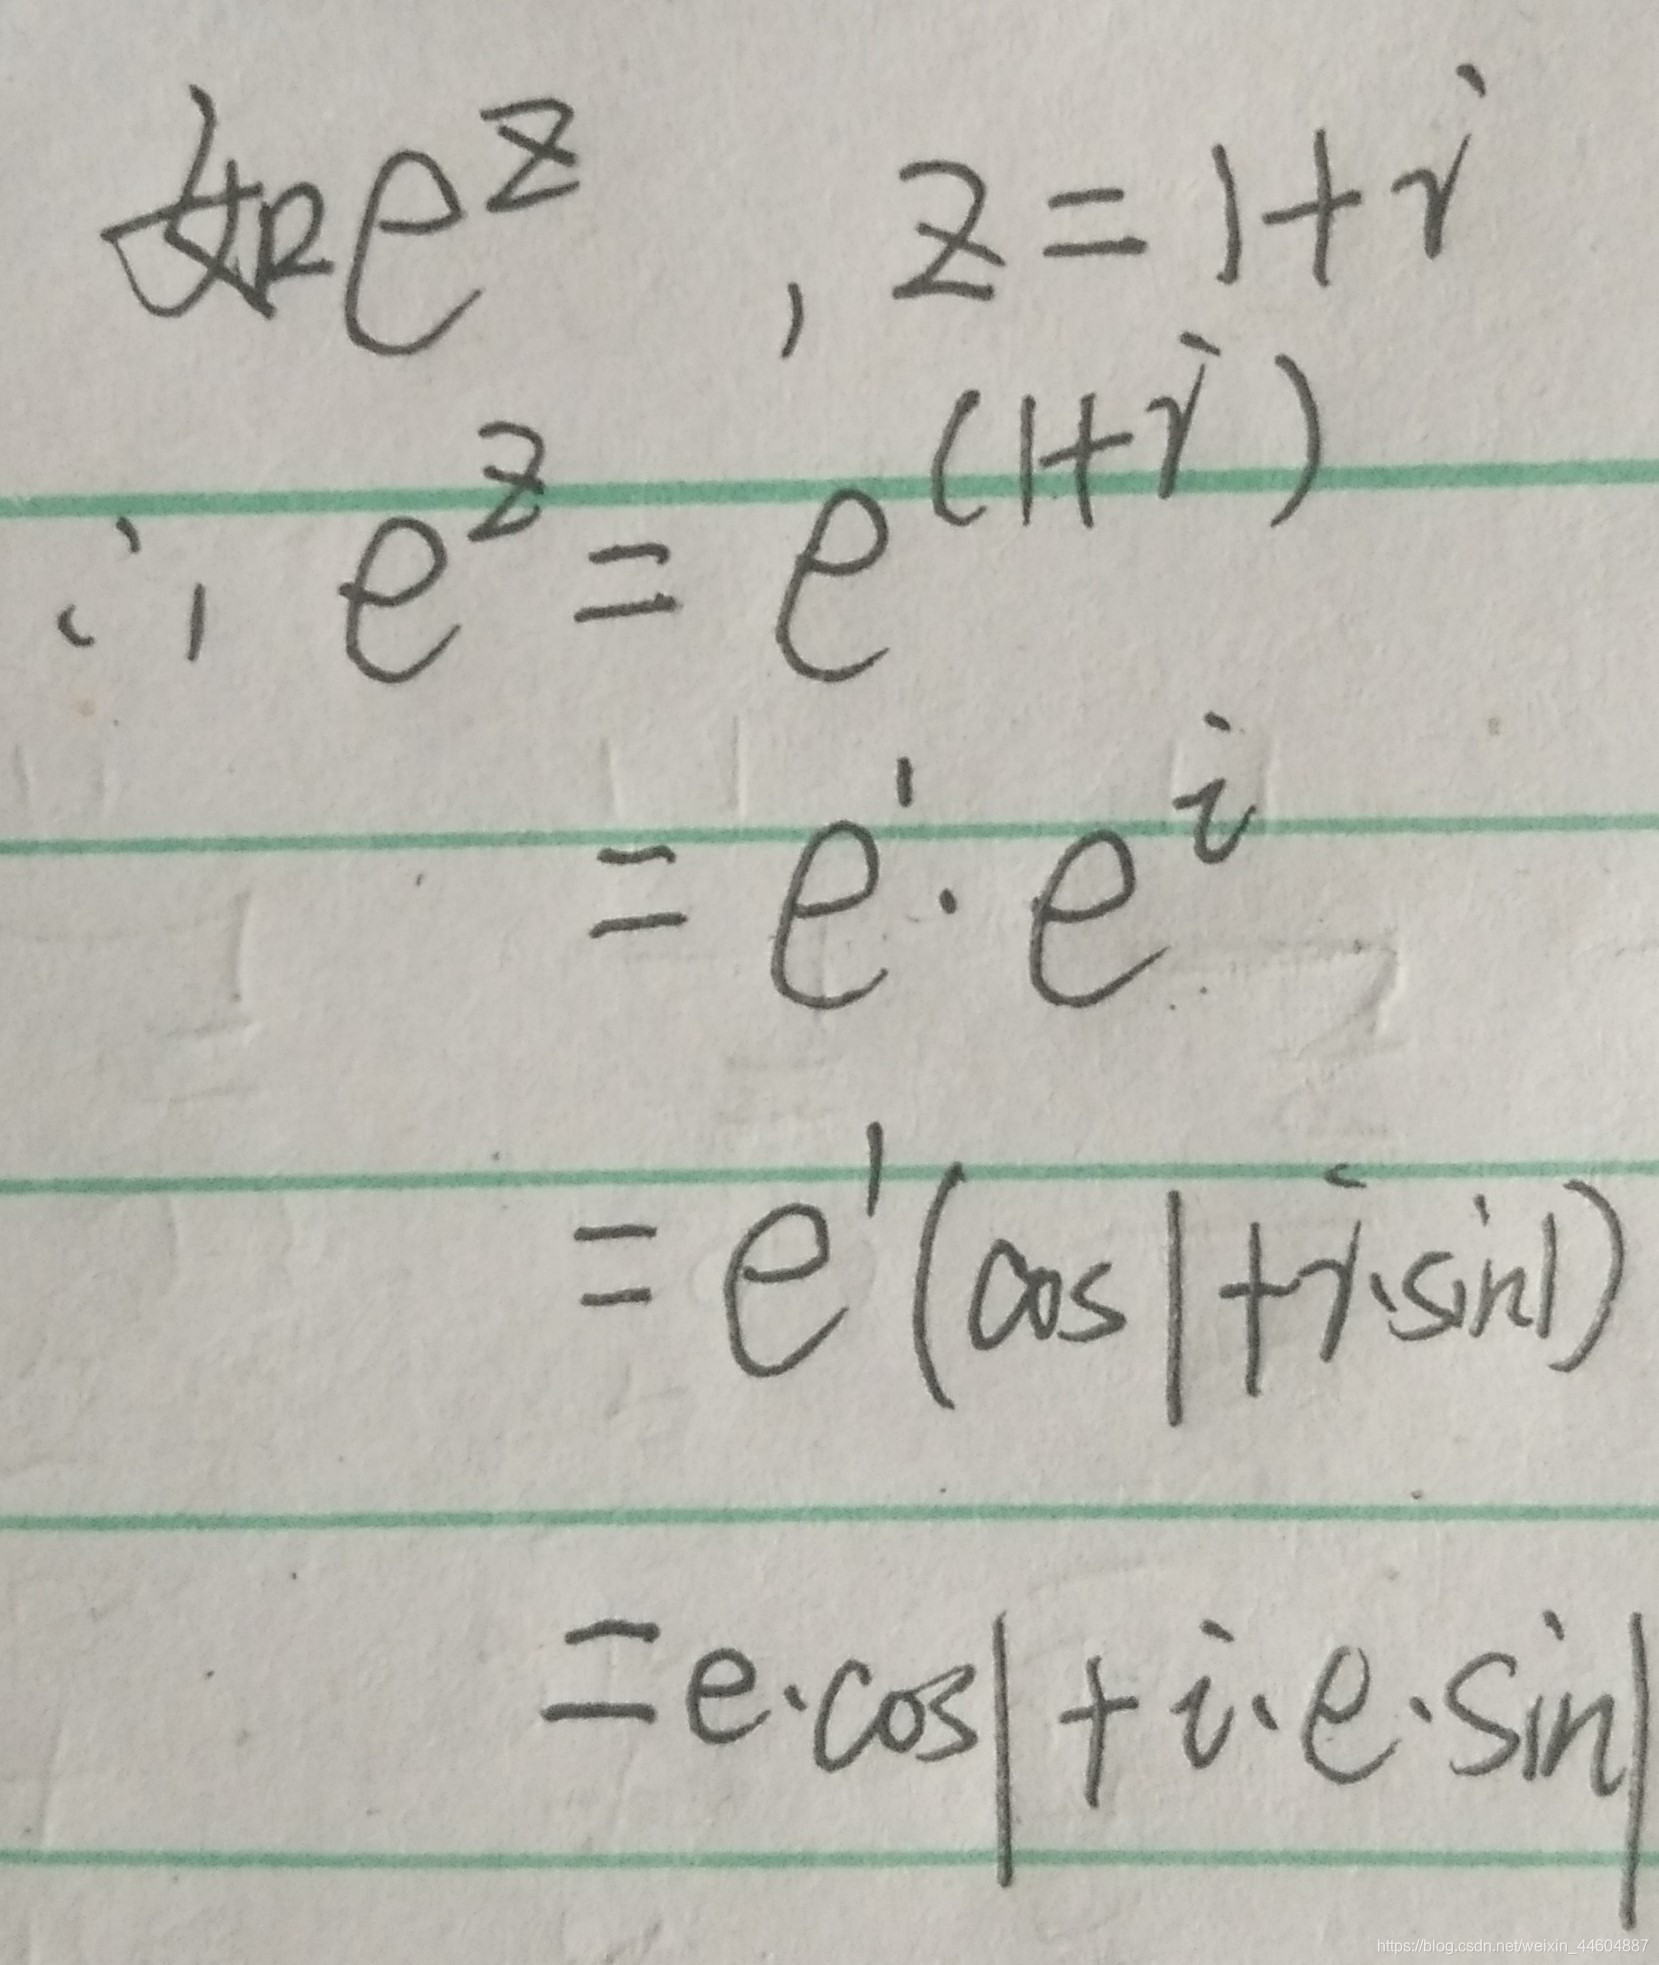 如e^z , z=1+i
∴ e^z = e^(1+i)
= e^1 · e^i
= e^1(cos1+i·sin1)
=e·cos1+i·e·sin1
https://blog.csdn.net/weixin_44604887